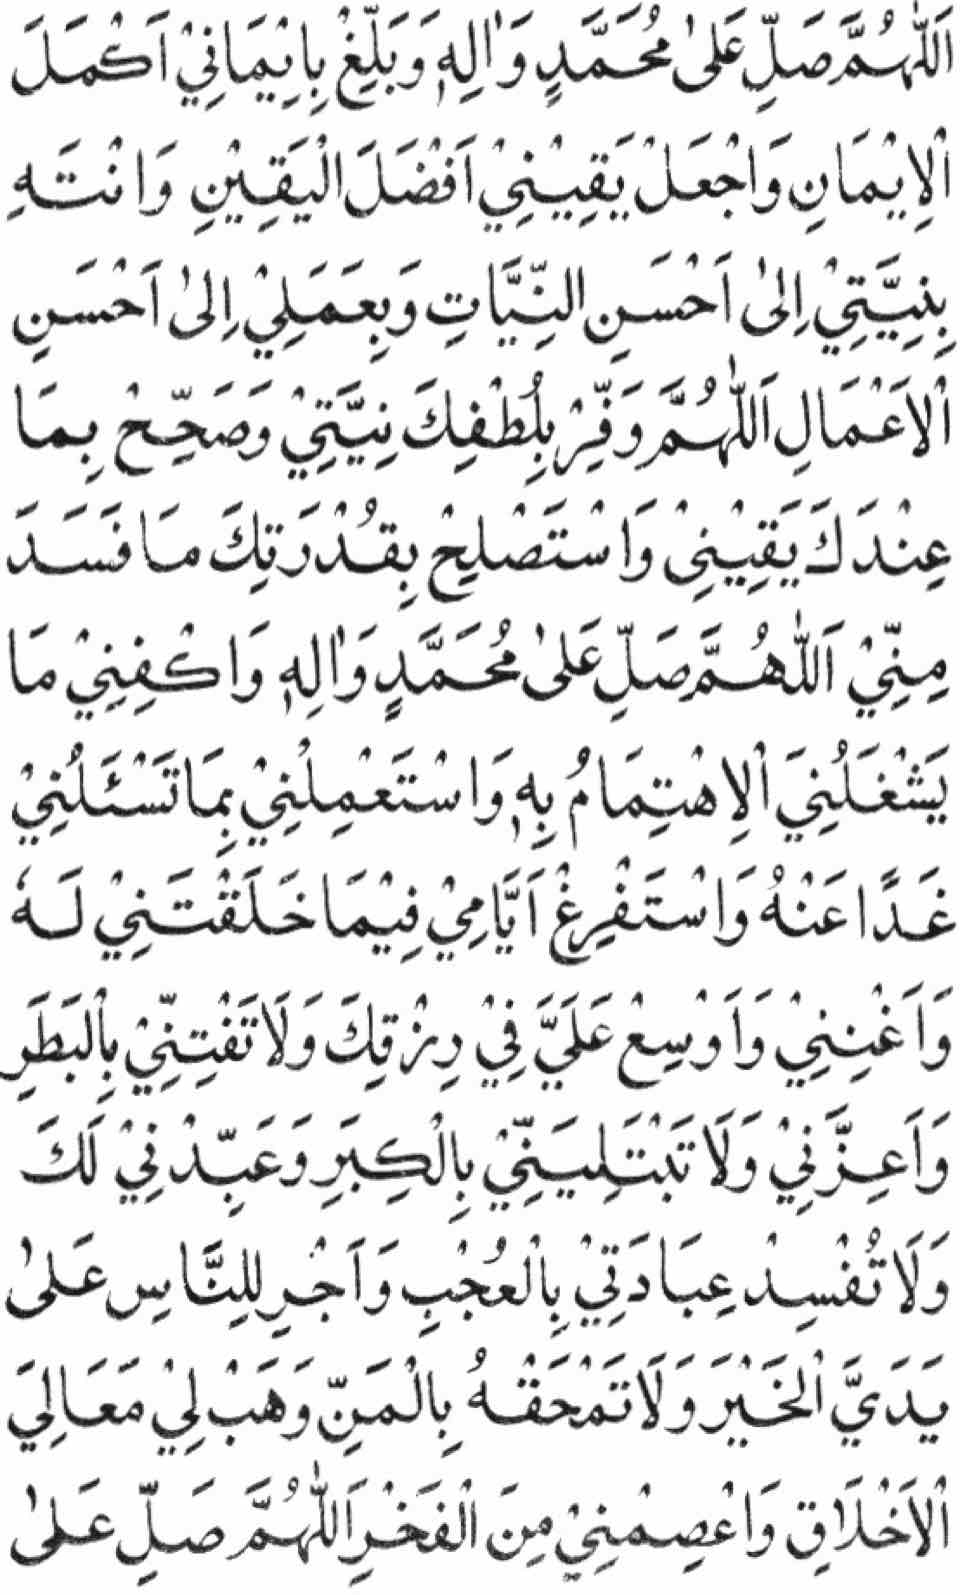 اَللّٰهُمَّ صَلِّ عَلىٰ مُحَمَّدٍ وَاٰلِهٖ وَبَلِّغْ بِاِيْمَانِيْ اَكْمَلَ
الْاِيْمَانِ وَاجْعَلْ يَقِيْنِيْ اَفْضَلَ الْيَقِيْنِ وَانْتَهِ
بِنِيَّتِيْ اِلىٰ اَحْسَنِ النِّيَّاتِ وَبِعَمَلِيْ اِلىٰ اَحْسَنِ
الْاَعْمَالِ اَللّٰهُمَّ وَفِّرْ بِلُطْفِكَ نِيَّتِيْ وَصَحِّحْ بِمَا
عِنْدَكَ يَقِيْنِيْ وَاسْتَصْلِحْ بِقُدْرَتِكَ مَا فَسَدَ
مِنِّيْ اَللّٰهُمَّ صَلِّ عَلىٰ مُحَمَّدٍ وَاٰلِهٖ وَاكْفِنِيْ مَا
يَشْغَلُنِيَ الْاِهْتِمَامُ بِهٖ وَاسْتَعْمِلْنِيْ بِمَا تَسْئَلُنِيْ
غَدًا عَنْهُ وَاسْتَفْرِغْ اَيَّامِيْ فِيْمَا خَلَقْتَنِيْ لَهٗ
وَاَغْنِنِيْ وَاَوْسِعْ عَلَيَّ فِيْ رِزْقِكَ وَلَا تَفْتِنِّيْ بِالْبَطَرِ
وَاَعِزَّنِيْ وَلَا تَبْتَلِيَنِّيْ بِالْكِبَرِ وَعَبِّدْنِيْ لَكَ
وَلَا تُفْسِدْ عِبَادَتِيْ بِالْعُجْبِ وَاَجْرِ لِلنَّاسِ عَلىٰ
يَدَيَّ الْخَيْرَ وَلَا تَمْحَقْهُ بِالْمَنِّ وَهَبْ لِيْ مَعَالِيَ
الْاَخْلَاقِ وَاعْصِمْنِيْ مِنَ الْفَخْرِ اَللّٰهُمَّ صَلِّ عَلىٰ